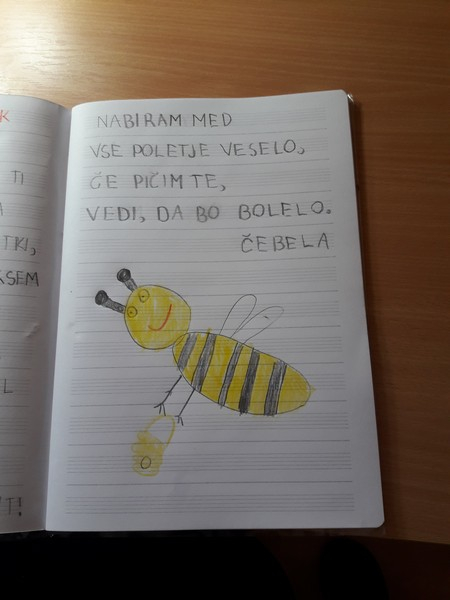 K
TI
A
TKI,
KSEM
L
T!
NABIRAM MED
VSE POLETJE VESELO,
ČE PIČIM TE,
VEDI, DA BO BOLELO.
ČEBELA